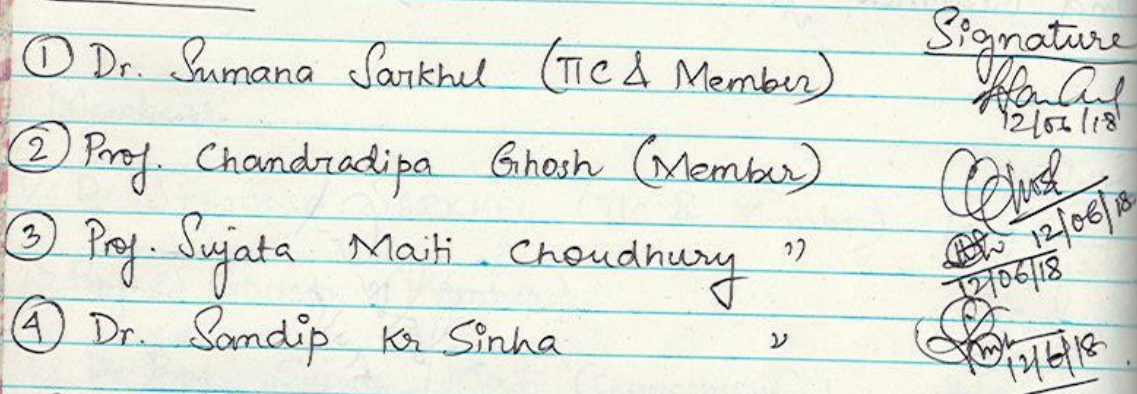 Signature
① Dr. Sumana Sarkhel (TIC & Member)
12/06/18
② Prof. Chandradipa Ghosh (Member)
12/06/18
③ Prof. Sujata Maiti Choudhury "
12/06/18
④ Dr. Sandip Kr Sinha "
12/6/18